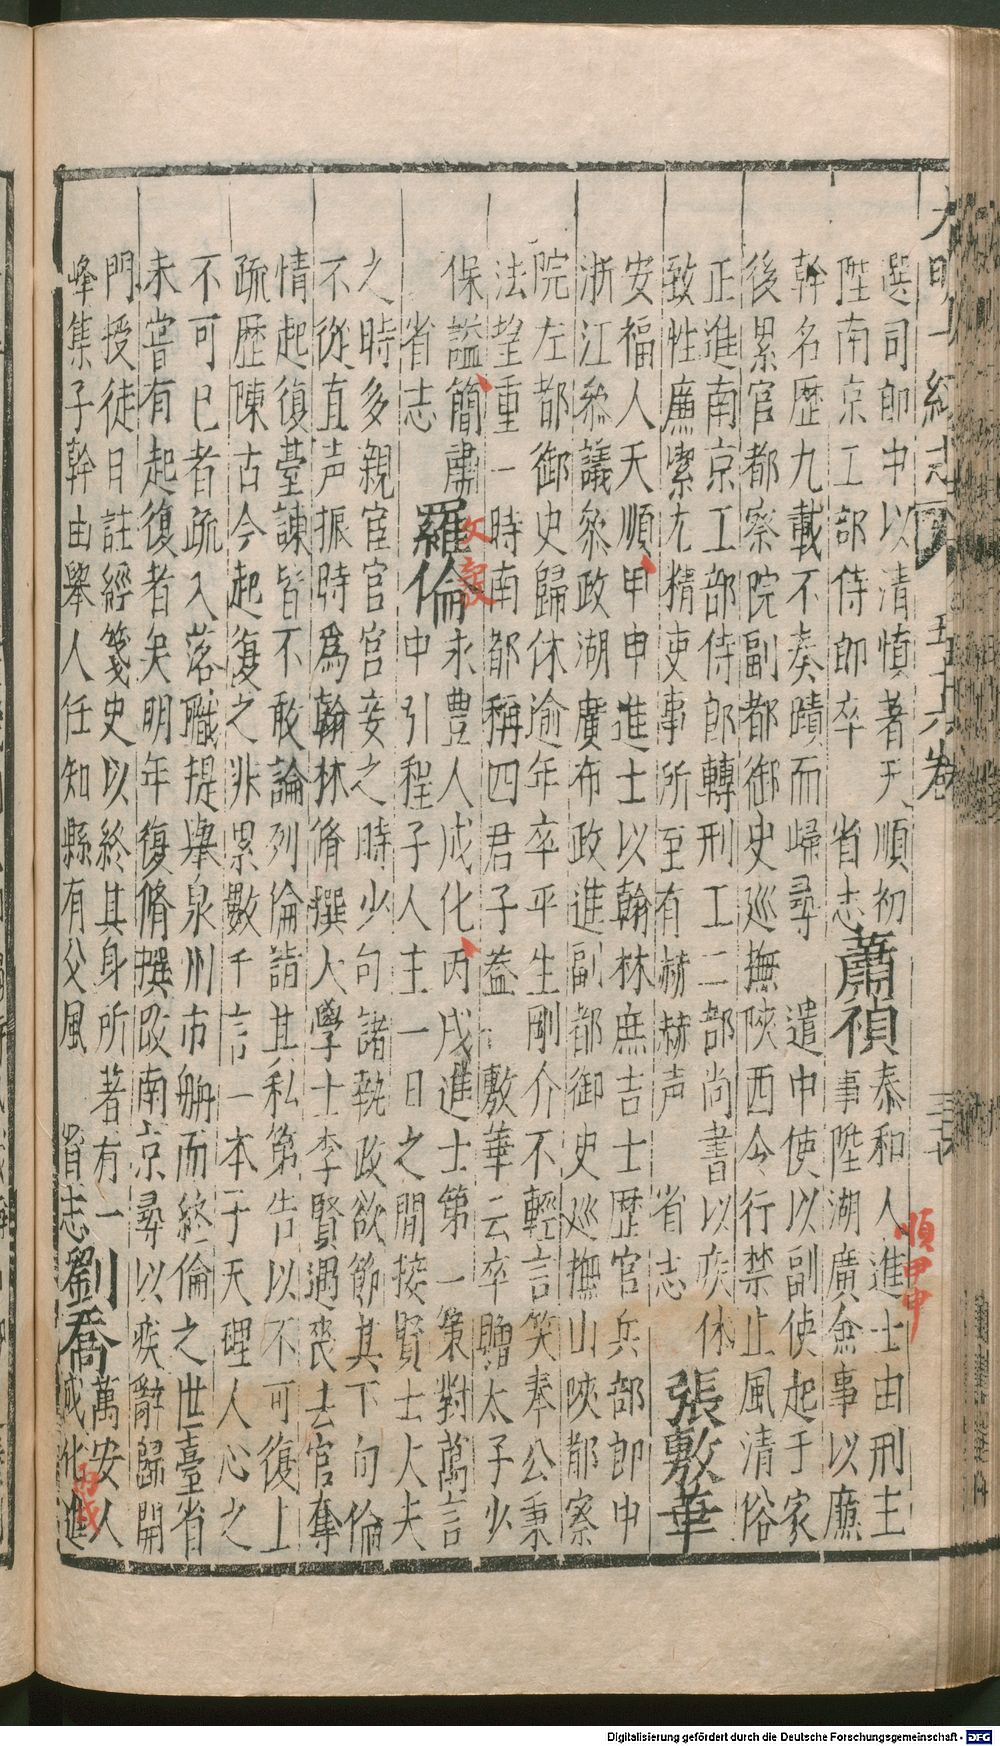 大明一統志 五十六卷 三十六
選司郎中以清慎著天順初
陞南京工部侍郎卒 省志
蕭禎
泰和人進士由刑主
事陞湖廣僉事以廉
順甲申
幹名歷九載不奏蹟而歸尋 遣中使以副使起于家
後累官都察院副都御史巡撫陝西令行禁止風清俗
正進南京工部侍郎轉刑工二部尚書以疾休
致性廉潔尤精吏事所至有赫赫声 省志
張敷華
安福人天順甲申進士以翰林庶吉士歷官兵部郎中
浙江叅議叅政湖廣布政進副都御史巡撫山陝都察
院左都御史歸休逾年卒平生剛介不輕言笑奉公秉
法望重一時南都稱四君子益 敷華云卒贈太子少
保謚簡肅
省志
文毅
羅倫
永豐人成化丙戌進士第一策對萬言
中引程子人主一日之間接賢士大夫
之時多親宦官宮妾之時少句諸執政欲節其下句倫
不從直声振時為翰林脩撰大學士李賢遇喪去官奪
情起復臺諫皆不敢論列倫詣其私第告以不可復上
疏歷陳古今起復之非累數千言一本于天理人心之
不可已者疏入落職提舉泉州市舶而終倫之世臺省
未嘗有起復者矣明年復脩撰改南京尋以疾辭歸開
門授徒日註經箋史以終其身所著有一
峰集子幹由舉人任知縣有父風 省志
劉喬
萬安人
成化進
丙戌
Digitalisierung gefördert durch die Deutsche Forschungsgemeinschaft - DFG